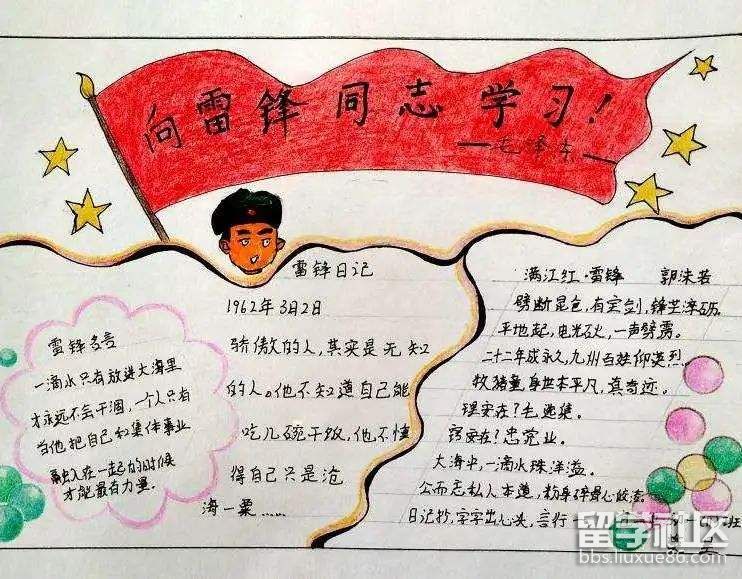 向雷锋同志学习!
——毛泽东——
雷锋名言
一滴水只有放进大海里
才永远不会干涸,一个人只有
当他把自己和集体事业
融入在一起的时候
才能最有力量.
雷锋日记
1962年3月2日
骄傲的人,其实是无知
的人。他不知道自己能
吃几碗干饭,他不懂
得自己只是沧
海一粟......
满江红·雷锋 郭沫若
劈断昆仑,有宝剑,锋芒淬砺.
平地起,电光石火,一声霹雳。
二十二年成永久,九州百姓仰英烈.
牧猪童,身世本平凡,真奇迹.
现实在?毛选集.
窍实在?忠党业.
大海中,一滴水珠洋溢.
公而忘私人本道,粉身碎骨心皎洁
日记抄,字字出心头,言行一
班
留学社区
bbs.liuxue86.com